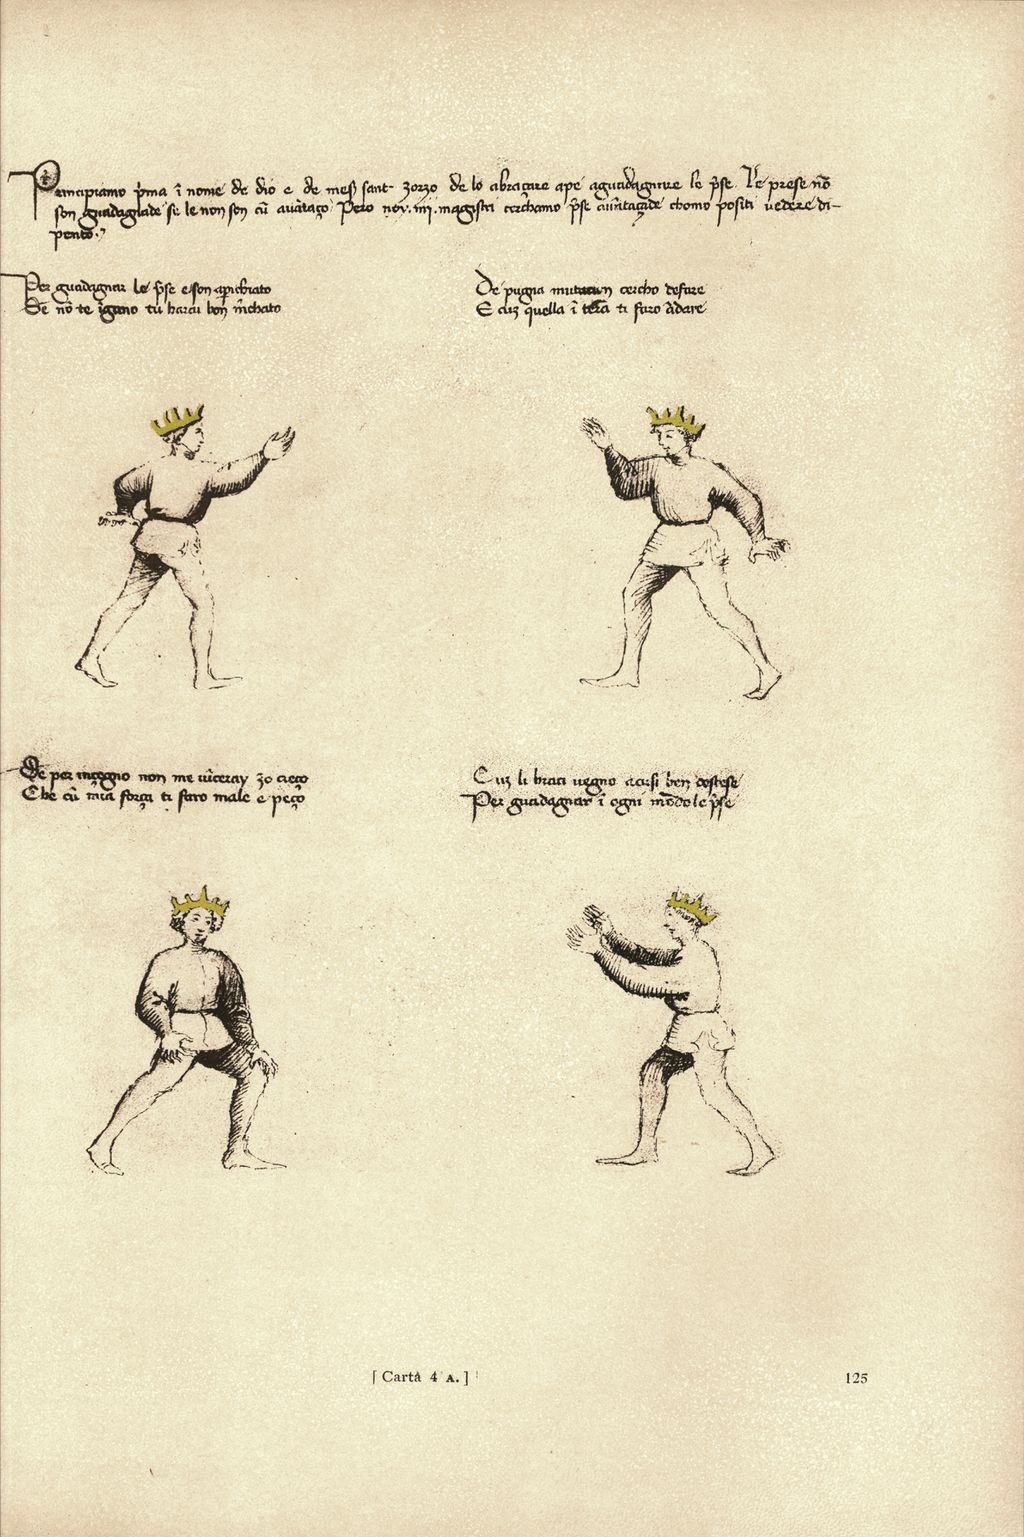 Principiamo p̄ma ī nome de dio e de meṣ sant zorzo de lo abraçare ape aguadagnare le p̄se. Le prese nō
son guadagnade se le non son cū auātaço Pero noy .iiij. magistri cerchamo p̄se auātaçade chomo positi uedere di-
pento.
Per guadagnar le p̄se e son aparechiato
Se nō te īgano tu harai bon m̄chato
De pugna mutacion cercho de fare
E cuz quella ī tera ti faro ādare
Se per inçegno non me uīceray zo creço
Che cū mia força ti faro male e peço
Cuz li braci uegno acusi ben costese
Per guadagnar ī ogni modo le p̄se
[ Carta 4 A. ]
125